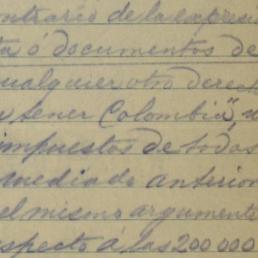 ontrario de la expresi
ta ó documentos de
cualquier otro derec
a tener Colombia", u
impuestos de todos
mediado anterior
el mismo argumento
especto á las 200 000